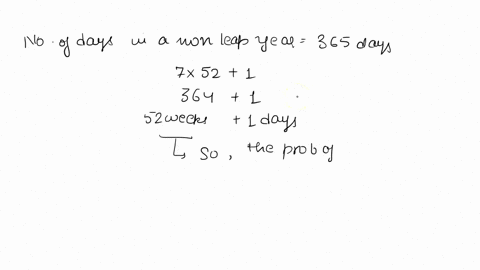 No. of days in a non leap year = 365 days
7 x 52 + 1
364 + 1
52 weeks + 1 days
↳ So, the prob of